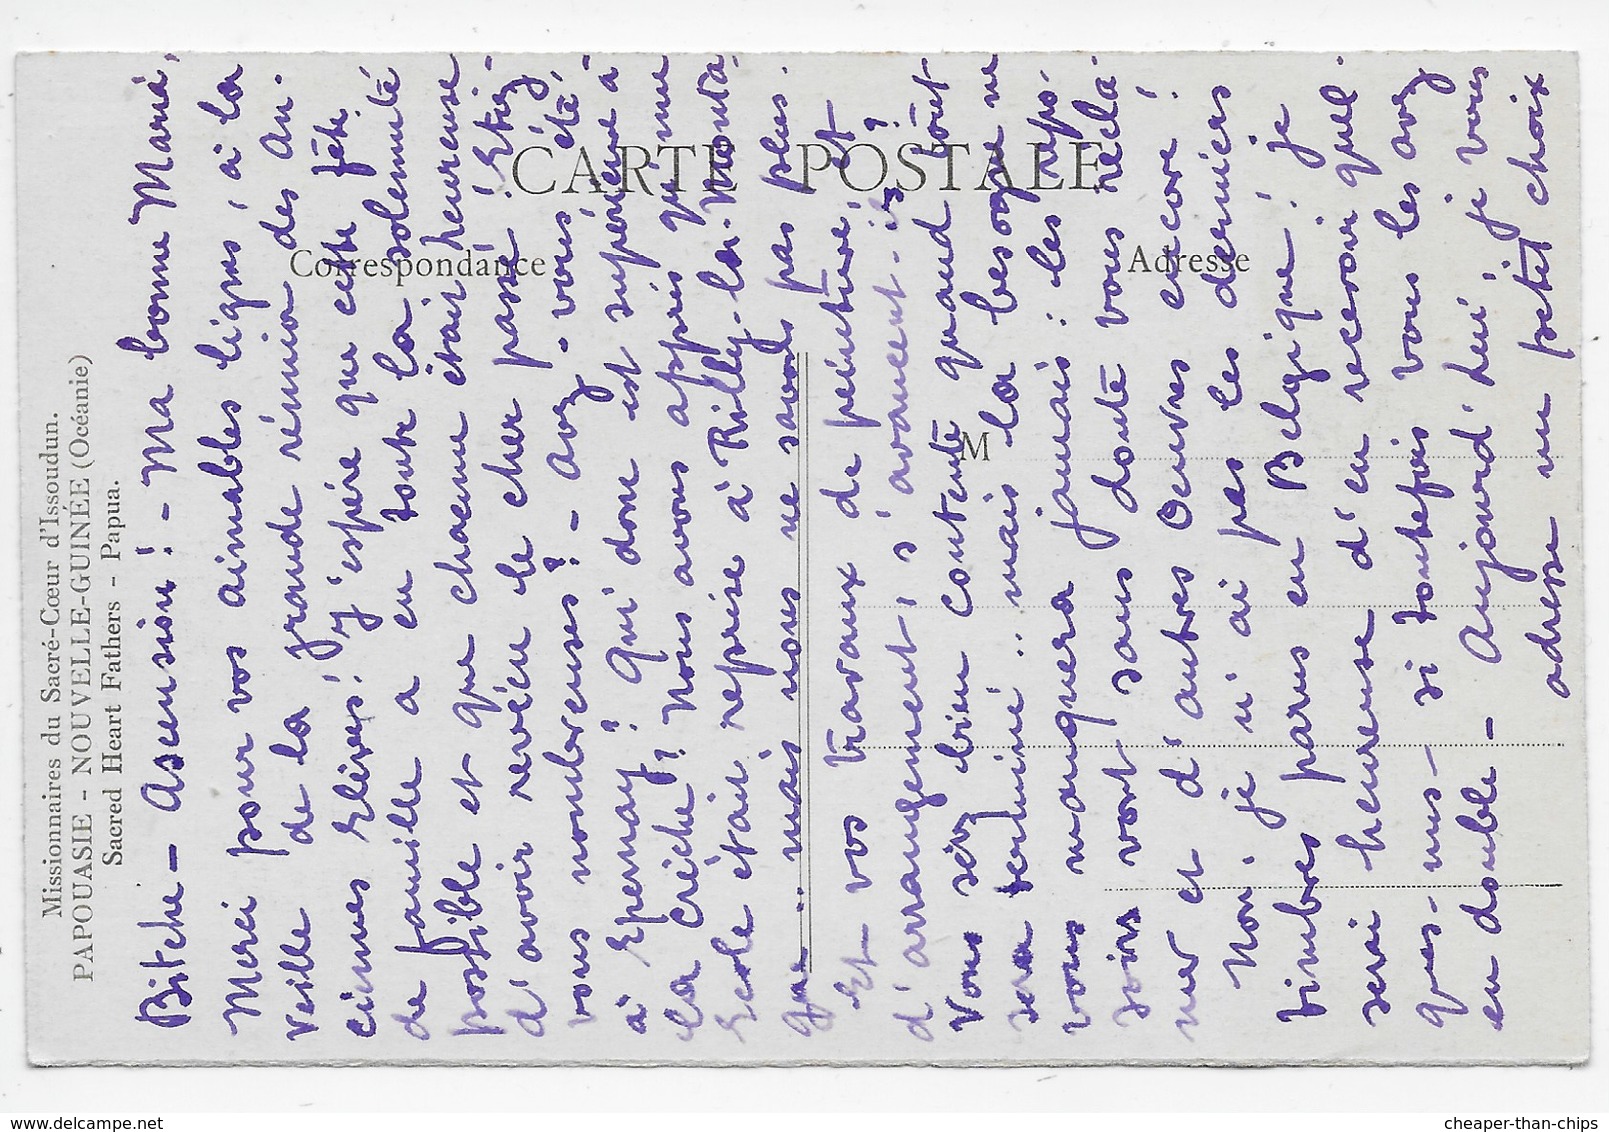 Missionnaires du Sacré-Cœur d'Issoudun.
PAPOUASIE - NOUVELLE-GUINÉE (Océanie)
Sacred Heart Fathers - Papua.
CARTE POSTALE
Correspondance
Adresse
M
Bitche - Ascension! - Ma bonne Mamé,
Merci pour vos aimables lignes, à la
Veille de la grande réunion des An-
ciennes Elèves! j'espère que cette fête
de famille a eu toute la solennité
possible et que chacune était heureuse
d'avoir revécu le cher passé! Etiez-
vous nombreuses? - Avez-vous été,
à Epernay? Qui donc est supérieure à
la Crèche? Nous avons appris que une
Ecole était reprise à Rilly-la-Monta-
gne... mais nous ne savons pas plus.
Et vos travaux de peinture, et
d'arrangement, s'avancent-ils?
Vous serez bien contente quand tout
sera terminé... mais la besogne ne
vous manquera jamais: les repo-
soirs vont sans doute vous récla-
mer et d'autres Oeuvres encore!
Non, je n'ai pas les derniers
timbres parus en Belgique! je
serai heureuse d'en recevoir quel-
ques-uns - si toutefois vous les avez
en double - Aujourd'hui, je vous
adresse un petit choix
cheaper-than-chips